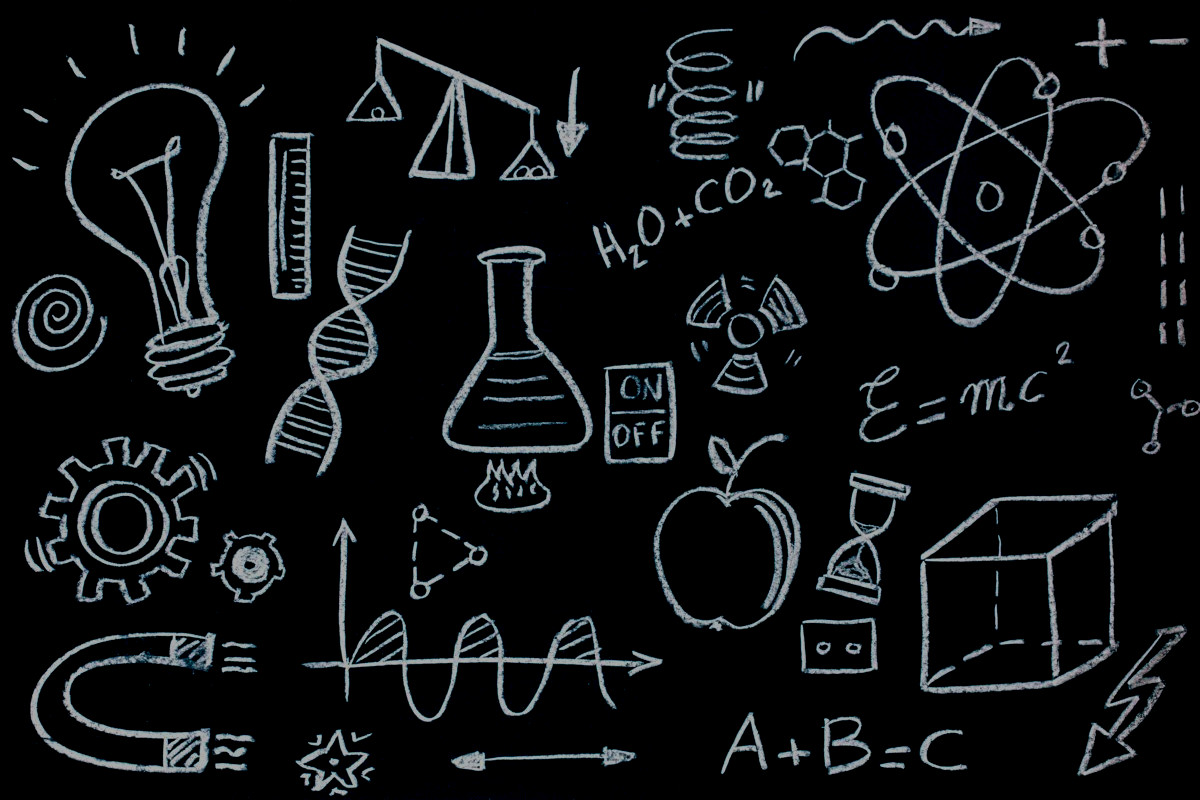 + −
H₂O + CO₂
ON
OFF
E = mc²
A + B = C